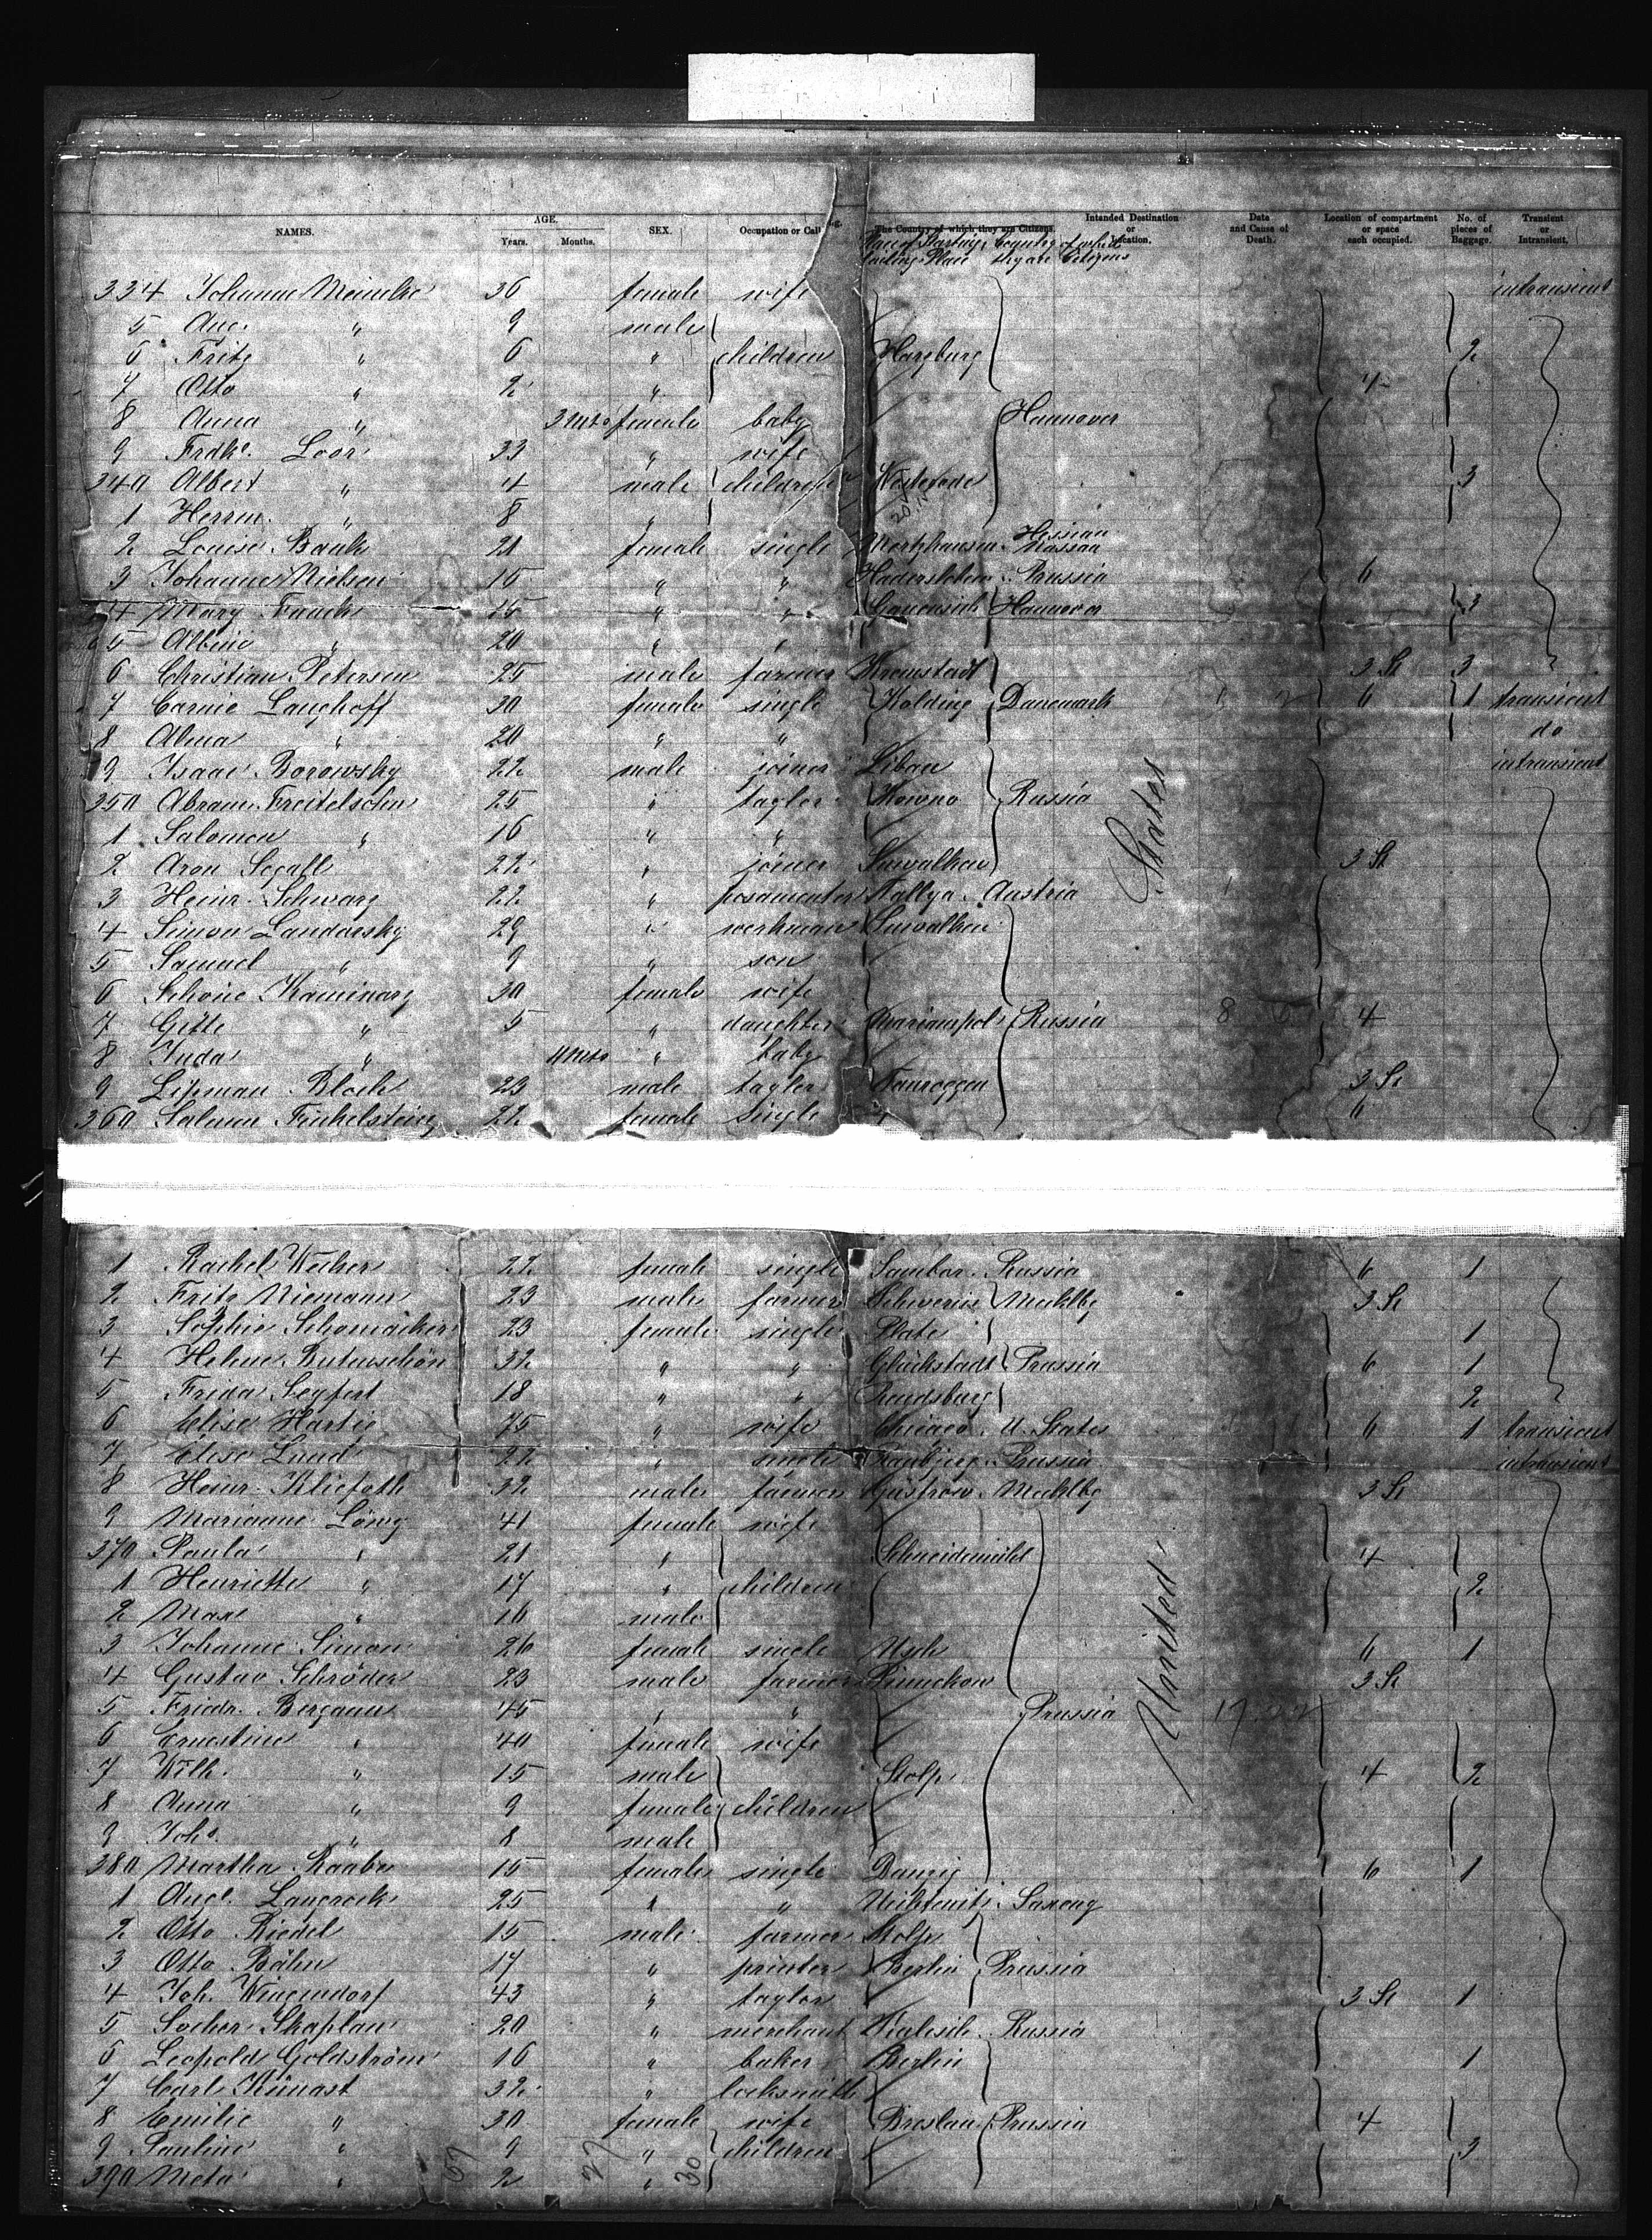 NAMES. AGE. Years. Months. SEX. Occupation or Call The Country of which they are Citizens. Intended Destination or Location. Date and Cause of Death. Location of compartment or space each occupied. No. of pieces of Baggage. Transient or Intransient.
Place of Starting Country of which
they are Citizens
334 Johanne Meincke 36 female wife intransient
5 Aug. " 9 male
6 Fritz " 6 " children Harzburg 2
7 Otto " 2 " 4
8 Anna " 3 Mts female baby Hannover
9 Frdke. Loor 33 " wife
340 Albert " 4 male children Westerode 3
1 Herm. " 8 "
2 Louise Bank 21 female single Hessian Nassau
3 Johanne Nielsen 15 " " Hadersleben Prussia 6
4 Mary Funck 15 " " Hannover 3
5 Albine " 20 " "
6 Christian Petersen 25 male farmer 3 St 3
7 Carnie Langhoff 30 female single Kolding Danemark 6 1 transient
8 Alma " 20 " " do
9 Isaac Borowsky 22 male joiner Libau intransient
350 Abram Freitelsohn 25 " taylor Kowno Russia
1 Salomon " 16 " "
2 Aron Segall 22 " joiner Suwalken 3 St
3 Heinr. Schwarz 22 " posamenter Tallya Austria
4 Simon Landarsky 29 " workman Suwalken
5 Samuel " 9 " son
6 Schoine Kaminary 30 female wife
7 Gitte " 5 " daughter Mariampol Russia 4
8 Juda " 11 Mts " baby
9 Lipman Bloch 23 male taylor Tauroggen 3 St
360 Salmen Finkelstein 22 female single " 6
States
1 Rachel Wecker 22 female single Sambar Russia 6 1
2 Fritz Niemann 23 male farmer Schwerin Mecklbg 3 St
3 Sophie Schomacker 23 female single Plate 1
4 Helene Butenschön 32 " " Glückstadt Prussia 6 1
5 Frida Seyfert 18 " " Rendsburg 2
6 Elise Hartig 75 " wife Chicago U. States 6 1 transient
7 Elise Lund 22 " single Prussia intransient
8 Heinr. Kliefoth 32 male farmer Güstrow Mecklbg 3 St
9 Marianne Löwy 41 female wife
370 Paula " 21 " Schneidemühl 4
1 Henriette " 17 " children 2
2 Max " 16 male
3 Johanne Simon 26 female single Usch 6 1
4 Gustav Schröder 23 male farmer 3 St
5 Friedr. Bergann 45 " " Prussia
6 Ernestine " 40 female wife
7 Wilh. " 15 male Stolp 4 2
8 Anna " 9 female children
9 Johs. " 8 male
380 Martha Raabe 15 female single Danzig 6 1
1 Auge. Langrock 25 " " Saxony
2 Otto Riedel 15 male farmer Stolp
3 Otto Bähn 17 " printer Berlin Prussia
4 Joh. Wingendorf 43 " taylor 3 St 1
5 Socher Skaplan 20 " merchant Russia
6 Leopold Goldström 16 " baker Berlin 1
7 Carl Künast 32 " locksmith
8 Emilie " 30 female wife Breslau Prussia 4
9 Pauline " 9 " children 3
390 Meta " 2 "
United